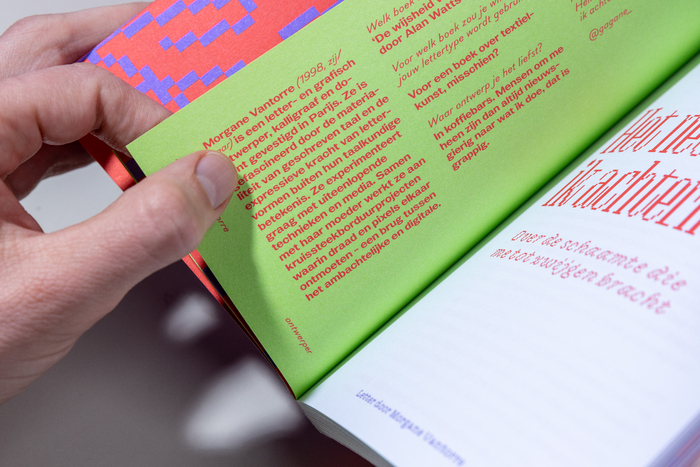 Morgane Vantorre (1998, zij/
haar) is een letter- en grafisch
ontwerper, kalligraaf en do-
cent gevestigd in Parijs. Ze is
gefascineerd door de materia-
liteit van geschreven taal en de
expressieve kracht van letter-
vormen buiten hun taalkundige
betekenis. Ze experimenteert
graag met uiteenlopende
technieken en media. Samen
met haar moeder werkt ze aan
kruissteekborduurprojecten
waarin draad en pixels elkaar
ontmoeten – een brug tussen
het ambachtelijke en digitale.
ontwerper
Welk boek
'De wijsheid v
door Alan Watts
Voor welk boek zou je wi
jouw lettertype wordt gebrui
Voor een boek over textiel-
kunst, misschien?
Waar ontwerp je het liefst?
In koffiebars. Mensen om me
heen zijn dan altijd nieuws-
gierig naar wat ik doe, dat is
grappig.
ik achte
@gagane_
Het niet
ik achter
Over de schaamte die
me tot zwijgen bracht
Letter door Morgane Vantorre